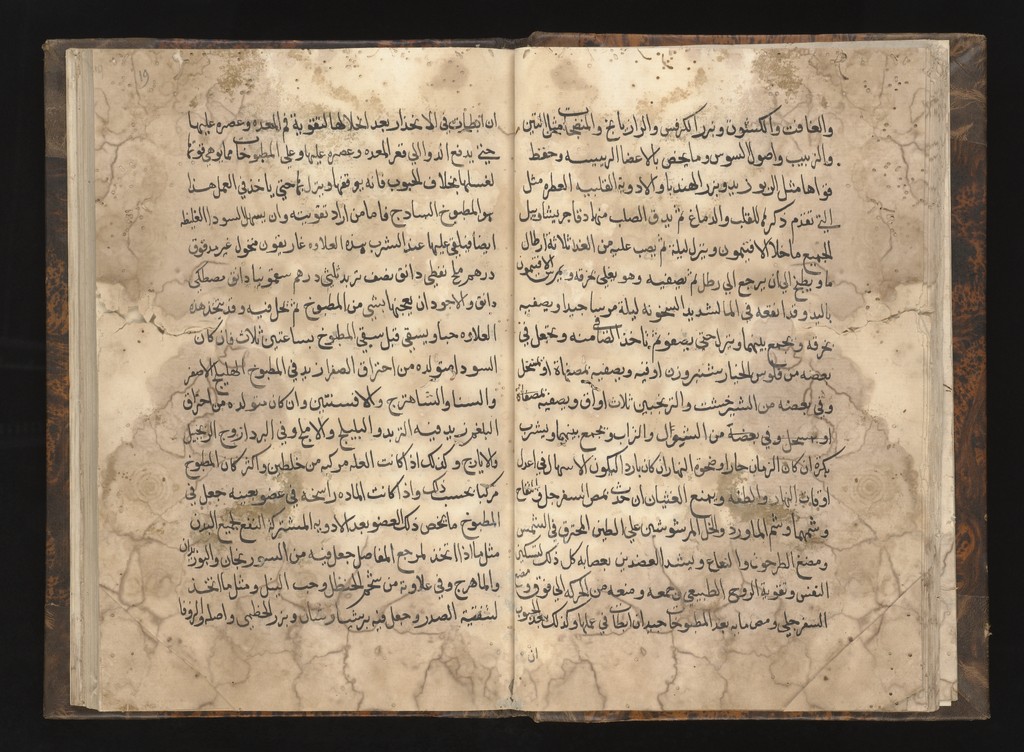 والغافت واكشوث وبزر الكرفس والرازيانج والمنقيات مثل التين
والزبيب واصول السوس وما يخص بالاعضا الرييسه وحفظ
قواها مثل الورد وبزر الهندبا والادوية القلبيه العطره مثل
التي تقدم ذكرها للقلب والدماغ ثم يدق الصلب منها دقا جريشا وبل
الجميع ما خلا الافتيمون ويترك ليلة ثم يصب عليه من الغد ثلاثة ارطال
ما ويطبخ الى ان يرجع الى رطل ثم تصفيه وهو يغلي بخرقه ويمرس الافتيمون
باليد وقد انقعه في الما الشديد السخونه ليلة مرسا جيدا ويصفيه
بخرقه ويجمع بينهما ويترك حتى يصفو ثم ياخذ الصافي منه ويجعل في
بعضه من فلوس الخيار شنبر وزن اوقيه ويصفيه بمصفاة او بمنخل
وفي بعضه من الشيرخشت والترنجبين ثلاث اواق ويصفيه بمصفاة
او بمنخل وفي بعضه من السكر والراب ويجمع بينهما ويشرب
بكرة ان كان الزمان حارا وضحوة النهار ان كان باردا ليكون الاسهال في اعدل
اوقات النهار والطفه ويمنع الغثيان ان حدث بمص السفرجل والتفاح
وشمهما وشم الماورد والخل المرشوشين على الطين المحترق في الشمس
ومضغ الطرخون والنعناع ويشد العضدين بعصابه كل ذلك لتسكين
النفس وتقوية الروح الطبيعي ومنعه من الحركه الى فوق ومضغ
السفرجلي ومص مايه بعد المطبوخات جيد ان ابطات في عملها وكذلك بعد الحبوب
ان
١٩
ان ابطات في الانحدار بعد انحلالها لتقوية فم المعده وعصره عليها
حتى يدفع الدوا الى قعر المعده وعصره عليها وعلى المطبوخات مما يوهن قوتها
لغسلها بخلاف الحبوب فانه يوقفها وينزل بها حتى ياخذ في العمل هذا
هو المطبوخ الساذج فاما من اراد تقويته وان يسهل السودا الغليظه
ايضا فيلقي عليها عند الشرب هذه العلاوه غاريقون منخول غير مدقوق
درهم ملح نفطي دانق نصف تربد ثلثي درهم سقمونيا دانق مصطكى
دانق والاجود ان يعجنها بشي من المطبوخ ثم تحل فيه وقد تتخذ هذه
العلاوه حبا ويسقى قبل سقي المطبوخ بساعتين ثلاث فان كان
السودا متولده من احتراق الصفرا زيد في المطبوخ الهليلج الاصفر
والسنا والشاهترج والافسنتين وان كان متولده من احتراق
البلغم زيد فيه التربد والبليلج والاملج وفي البرد ازوج الزنجبيل
والايارج وكذلك اذا كانت العله مركبه من خلطين واكثر كان المطبوخ
مركبا بحسب ذلك واذا كانت الماده راسخه في عضو بعينه جعل في
المطبوخ ما يخص ذلك العضو بعد الادويه المشتركة النفع لجميع البدن
مثل ما اذا اتخذ لوجع المفاصل جعل فيه من السورنجان والبوزيدان
والماهزهرج وفي علاوته من شحم الحنظل وحب النيل ومثل ما اتخذ
لتنقية الصدر وجعل فيه برشياوشان وبزر الخطمي واصله والزوفا